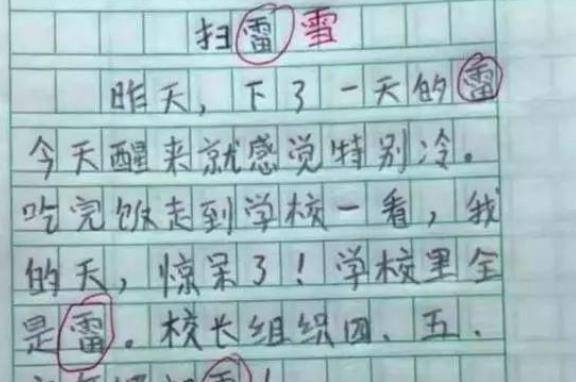 扫雷雪
昨天，下了一天的雷
今天醒来就感觉特别冷。
吃完饭走到学校一看，我
的天，惊呆了！学校里全
是雷。校长组织四、五、
雷！